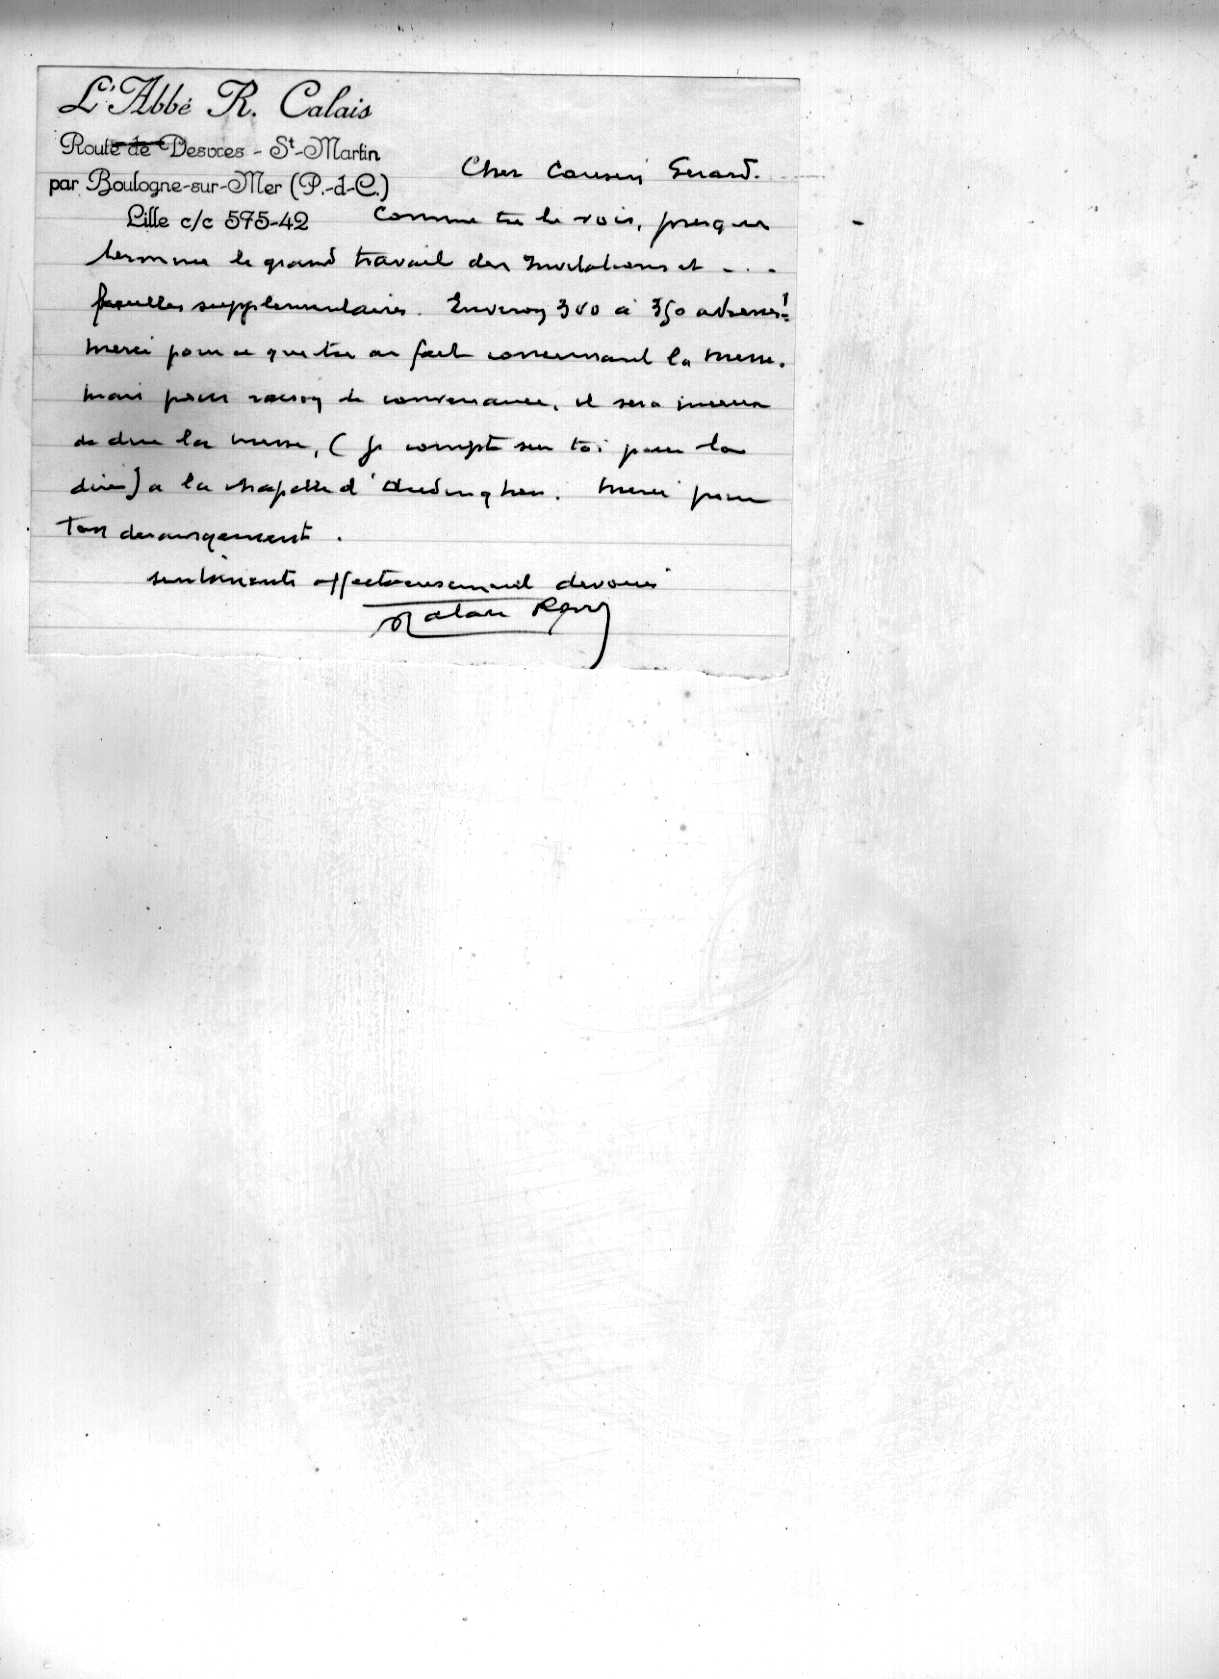 L'Abbé R. Calais
Route de Desvres - St-Martin
par Boulogne-sur-Mer (P.-d-C.)
Lille c/c 595-42
Cher Cousin Gerard.
Comme tu le vois, presque
termine le grand travail des Invitations et ...
feuilles supplementaires. Environ 300 à 350 adresses!
Merci pour ce que tu as fait concernant la messe.
Mais pour raison de convenance, il sera mieux
de dire la messe, (je compte sur toi pour la
dire) a la chapelle d'Audinghen. Merci pour
Ton derangement.
sentiments affectueusement devoués